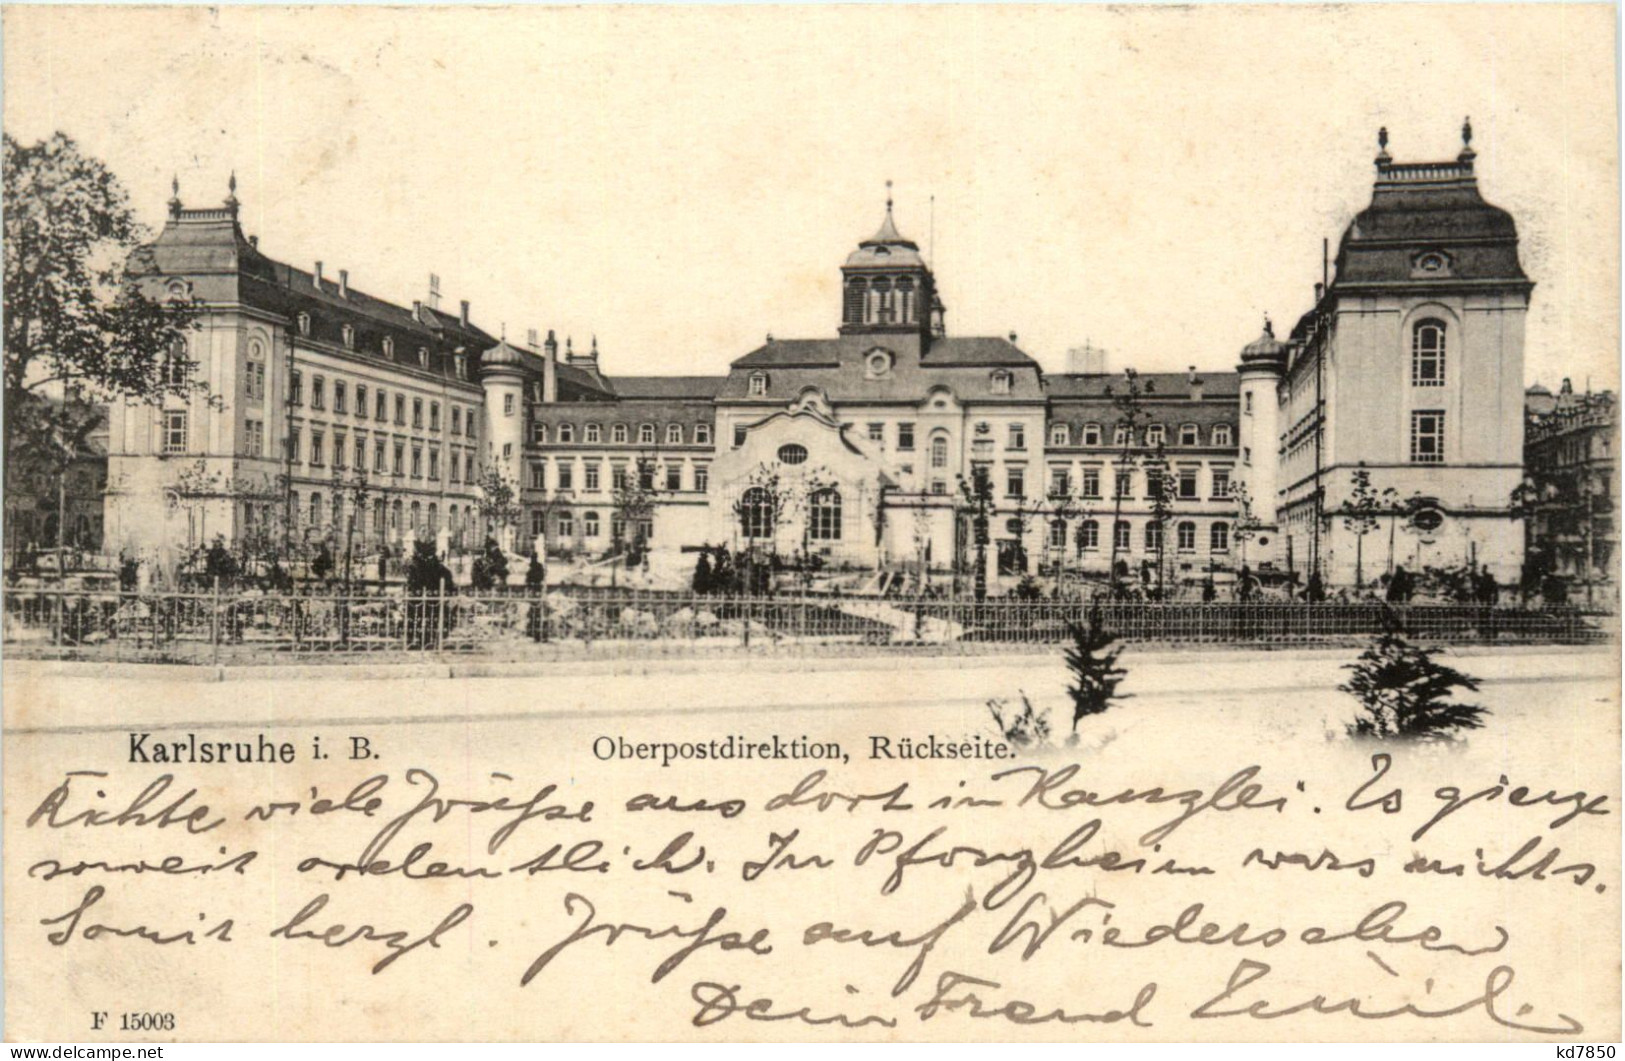 Karlsruhe i. B. Oberpostdirektion, Rückseite.
Richte viele Grüße aus dort in Kanzlei. Es gienge
soweit ordentlich. In Pforzheim wars nichts.
Somit herzl. Grüße auf Wiedersehen
Dein Freund Emil.
F 15003
kd7850